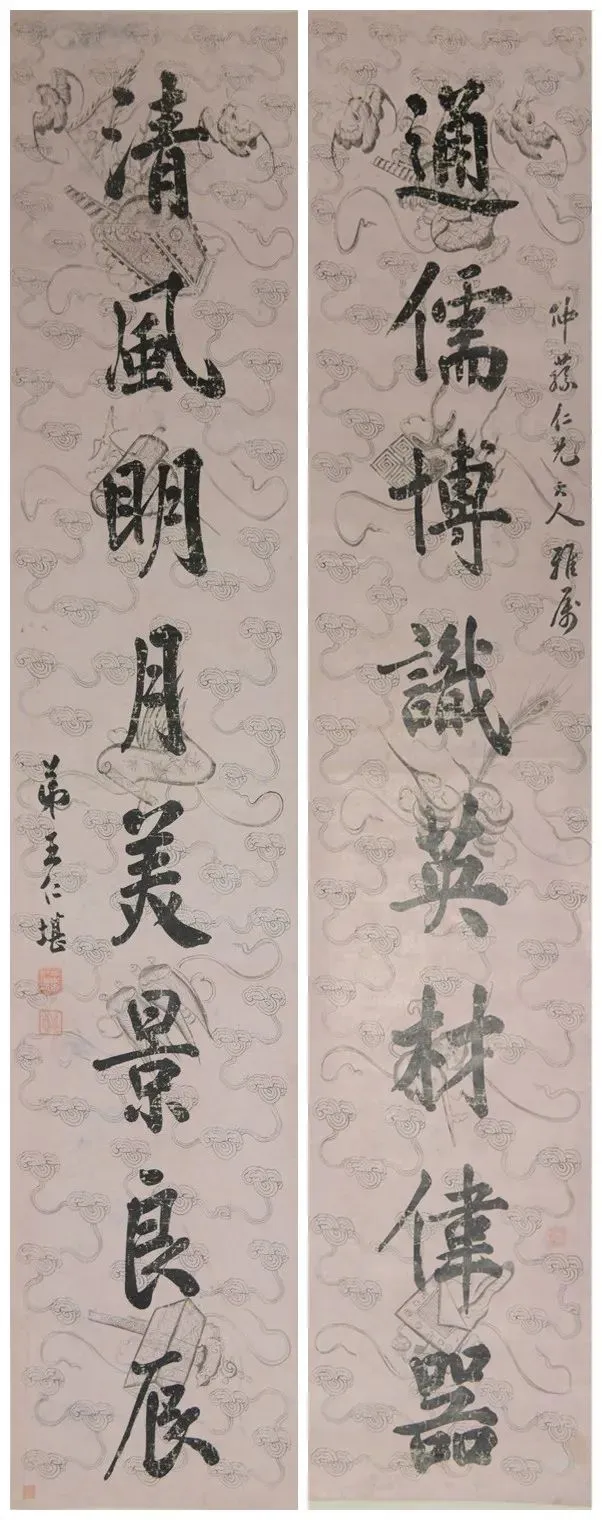 仲蘇仁兄大人雅屬
通儒博識英材偉器
清風明月美景良辰
弟王仁堪